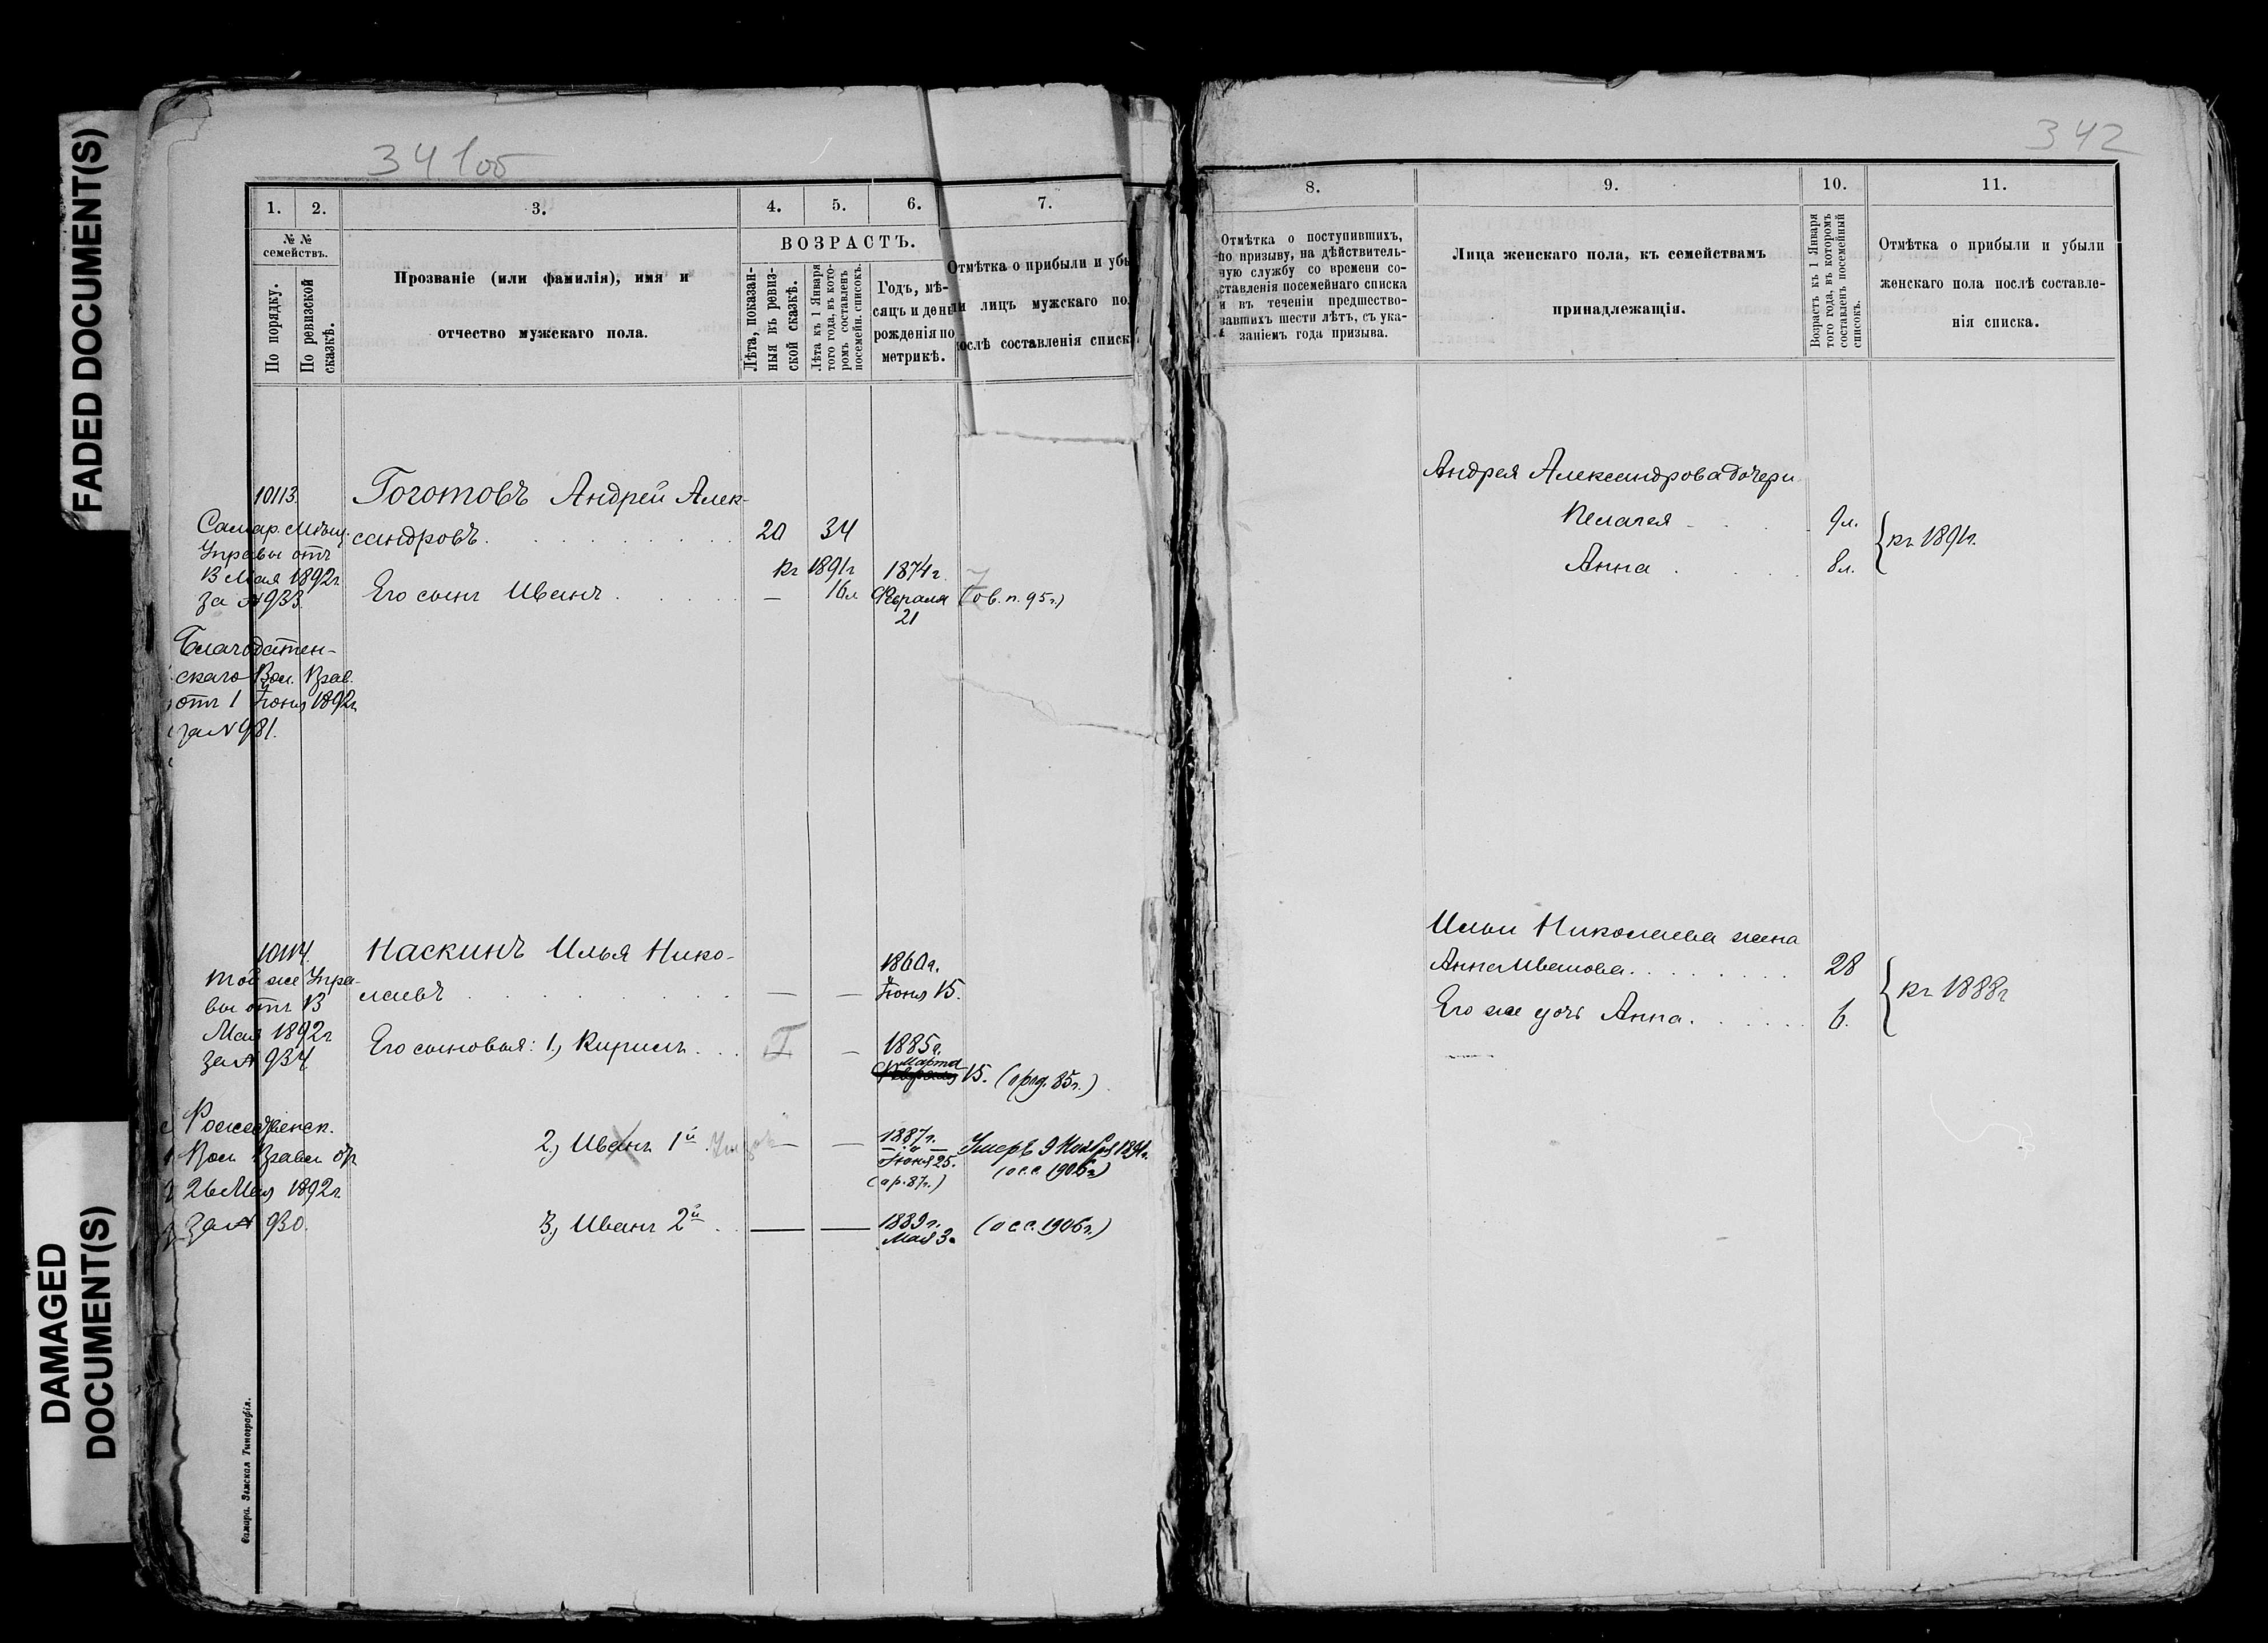 FADED DOCUMENT(S)
DAMAGED
DOCUMENT(S)
341об
1. 2. 3. 4. 5. 6. 7.
№ №
семействъ.
По порядку.
По ревизской
сказкѣ.
Прозваніе (или фамилія), имя и
отчество мужскаго пола.
ВОЗРАСТЪ.
Лѣта, показан-
ныя въ ревиз-
ской сказкѣ.
Лѣта къ 1 Января
того года, въ кото-
ромъ составленъ
посемейн. списокъ.
Годъ, мѣ-
сяцъ и день
рожденія по
метрикѣ.
Отмѣтка о прибыли и убы
ли лицъ мужскаго пол
послѣ составленія списка
10113
Самар. Мѣщ.
Управы отъ
13 Мая 1892г.
за № 933.
Гоготовъ Андрей Алек-
сандровъ. 20 34
къ 1891г
Его сынъ Иванъ — 16л
1874г.
Февраля
21
(о в. п. 95г.)
Благодатен-
скаго Вол. Прав.
отъ 1 Іюня 1892г.
за № 981.
10114.
той же Упра-
вы отъ 13
Мая 1892г
за № 934
Наскинъ Илья Нико-
лаевъ — —
1860г.
Іюня 15.
Его сыновья: 1, Кирилъ —
1885г.
Марта
15. (о род. 85г.)
Рождественск.
Вол. Правл. от
26 Мая 1892г.
за № 930.
2, Иванъ 1й — —
1887г.
Іюня 25.
(о р. 87г.)
Умеръ 9 Ноября 1891г.
(о с.с. 1906г.)
3, Иванъ 2й — —
1889г.
Мая 3.
(о с.с. 1906г.)
Самара. Земская Типографія.
342
8. 9. 10. 11.
Отмѣтка о поступившихъ,
по призыву, на дѣйствитель-
ную службу со времени со-
ставленія посемейнаго списка
и въ теченіи предшество-
вавшихъ шести лѣтъ, съ ука-
заніемъ года призыва.
Лица женскаго пола, къ семействамъ
принадлежащія.
Возрастъ къ 1 Января
того года, въ которомъ
составленъ посемейный
списокъ.
Отмѣтка о прибыли и убыли
женскаго пола послѣ составле-
нія списка.
Андрея Александрова дочери
Пелагея 9л.
Анна 8л.
къ 1891г.
Ильи Николаева жена
Анна Иванова. 28
Его же дочь Анна. 6.
къ 1888г